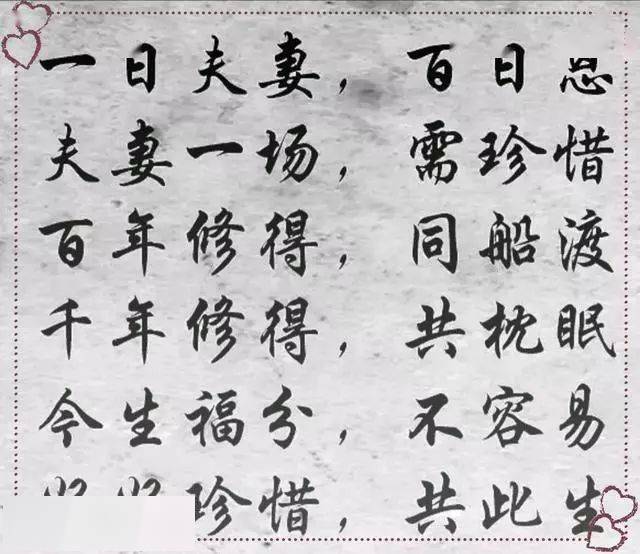 一日夫妻，百日恩
夫妻一场，需珍惜
百年修得，同船渡
千年修得，共枕眠
今生福分，不容易
珍惜，共此生